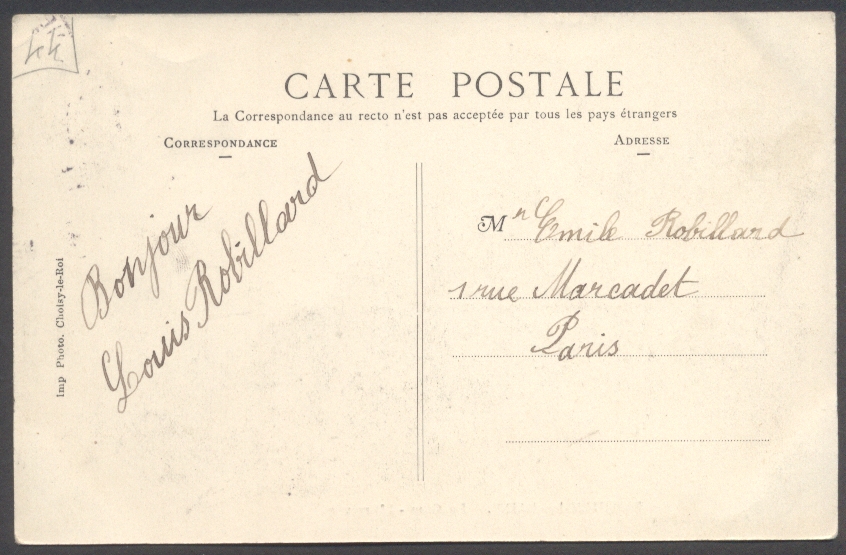 44
CARTE POSTALE
La Correspondance au recto n'est pas acceptée par tous les pays étrangers
CORRESPONDANCE
ADRESSE
Bonjour
Louis Robillard
Mr Emile Robillard
1 rue Marcadet
Paris
Imp Photo. Choisy-le-Roi